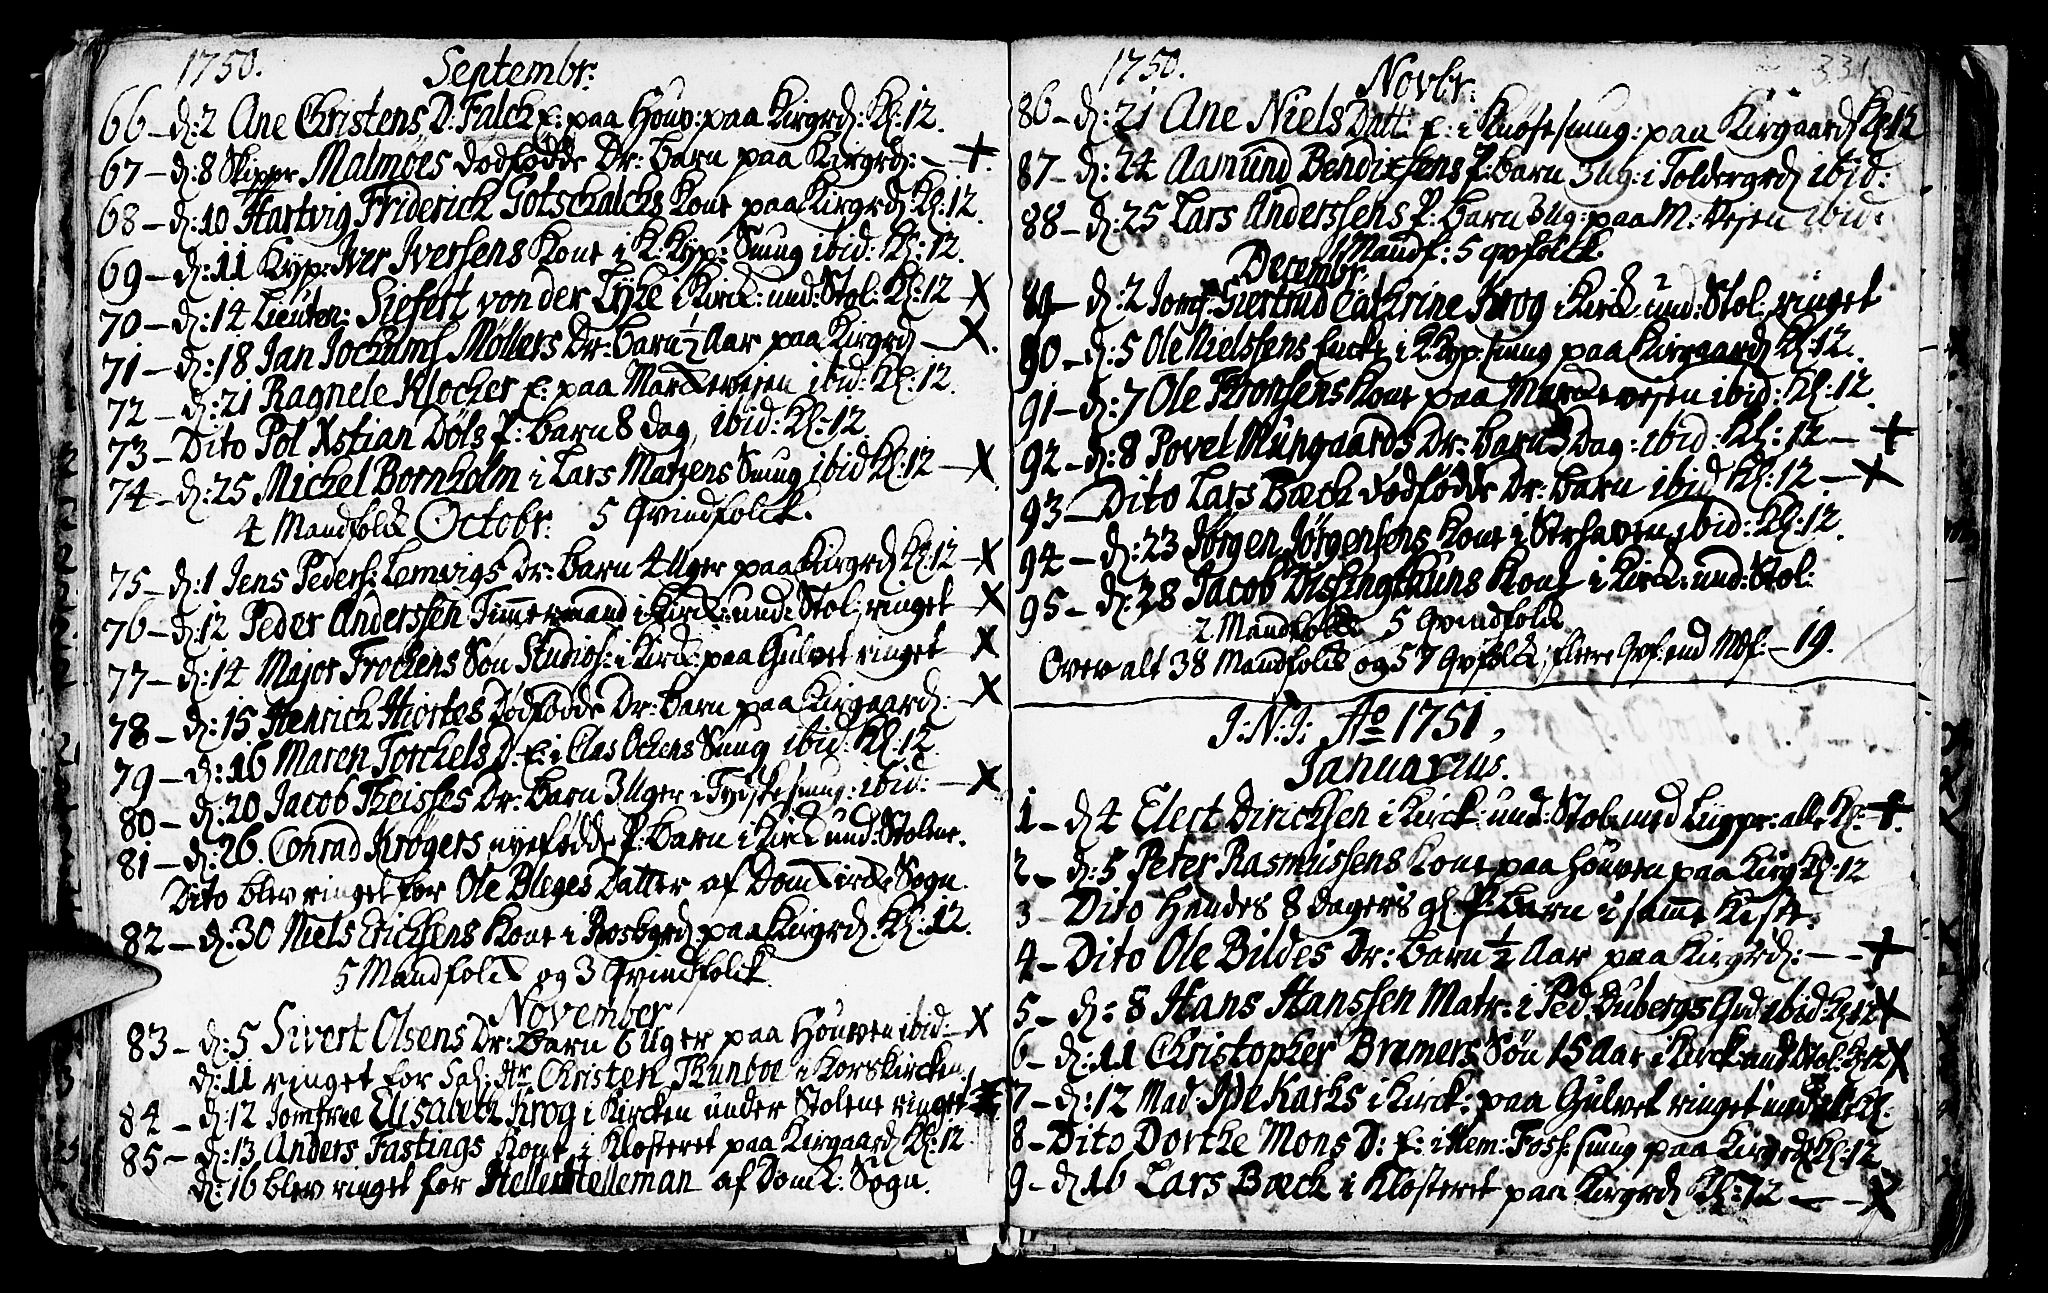 1750. Septembr:
66 – d: 2 Ane Christens D: Falck E: paa Houv: paa Kirgrd: Kl: 12.
67 – d: 8 Skippr Malmøes dødfødde Dr: barn paa Kirgrd: – +
68 – d: 10 Hartvig Friderich Gotschalchs Kone paa Kirgrd Kl: 12.
69 – d: 11 Kyp: Iver Iversens Kone i K: Kyp: Smug ibid: Kl: 12.
70 – d: 14 Lieuten: Siefert von der Lÿhe i Kirck: und: Stol: Kl: 12 – X
71 – d: 18 Jan Jochums Møllers Dr: barn ½ Aar paa Kirgrd – X.
72 – d: 21 Ragnele Klocker E: paa Marckeveyen ibid: Kl: 12.
73 – Dito Pol Xstian Døls P: barn 8 dag, ibid: Kl: 12
74 – d: 25 Michel Bornholm i Lars Matzens Smug ibid Kl: 12 – X
4 Mandfolck Octobr: 5 Qvindfolck.
75 – d: 1 Jens Peders: Lemvigs Dr: barn 4 Uger paa Kirgrd Kl: 12 – X
76 – d: 12 Peder Anderssen Timmermand i Kirck: und: Stol: ringet – X
77 – d: 14 Major Frochens Søn Studios: i Kirck: paa Gulvet ringet – X
78 – d: 15 Henrich Hiortes Dødfødde Dr: barn paa Kirgaard: – X
79 – d: 16 Maren Torchels D: E: i Clas Ockens Smug ibid: Kl: 12.
80 – d: 20 Jacob Theisses Dr: barn 3 Uger i Tydskesmug: ibid: – X
81 – d: 26. Conrad Krøgers nyefødde P: barn i Kirck und: Stolene.
Dito blev ringet for Ole Bleges Datter af Domkircke Sogn.
82 – d: 30 Niels Ericksens Kone i Rosbgrd paa Kirgrd. Kl: 12.
5 Mandfolck og 3 Qvindfolck
November
83 – d: 5 Sivert Olsens Dr: barn 6 Uger paa Houven ibid: – X
d: 11 ringet for Sal: Hr Christen Thunboe i Korskircken.
84 – d: 12 Jomfrue Elisabeth Krog i Kircken under Stolene ringet
85 – d: 13 Anders Fastings Kone i Klosteret paa Kirgaard Kl: 12
d: 16 blev ringet for Helle Helleman af Domk: Sogn.
1750. Novbr: 331.
86 – d: 21 Ane Niels Datt: E: i Knøsesmug: paa Kirgaard Kl: 12
87 – d: 24 Aamund Bendixsens P: barn 3 Ug: i Toldergrd ibid:
88 – d: 25 Lars Anderssens P: barn 3 Ug: paa M: Veyen ibid:
1 Mandf: 5 qvfolck
Decembr.
89 – d: 2 Jomf: Giertrud Cathrine Krog i Kirck: und: Stol: ringet
90 – d: 5 Ole Nielssens Encke i K Kyp: smug paa Kirgaard Kl: 12.
91 – d: 7 Ole Thronsens Kone paa Marckeveyen ibid: Kl: 12.
92 – d: 8 Povel Mungaards Dr: barn 3 Dag: ibid: Kl: 12 – +
93 – Dito Lars Bæck dødfødde Dr: barn ibid Kl: 12 – X
94 – d: 23 Jørgen Jørgensens Kone i Strhaven ibid: Kl: 12.
95 – d: 28 Jacob Dissingthuns Kone i Kirck: und: Stol:
2 Mandfolck 5 Qvindfolck
Over alt 38 Mandfolck og 57 Qvfolck, flere Qvf: end Mdf: – 19.
J: N: J: Ao 1751,
Januarius.
1 – d 4 Elert Diricksen i Kirck: und: Stol: med Liigpr: alle Kl: +.
2 – d: 5 Peter Rasmussens Kone paa Houven paa Kirg Kl: 12
3 – Dito Hendes 8 dagers gl P: barn i samme Kiste.
4 – Dito Ole Bildes Dr: barn ½ Aar paa Kirgrd: – – +
5 – d: 8 Hans Hanssen Matr: i Ped Dubergs Grd ibid Kl: 12 X
6 – d: 11 Christopher Bremers Søn 15 Aar i Kirck und: Stol: Kl: 12 X
7 – d: 12 Mad: Ide Karhs i Kirck: paa Gulvet ringet med Kl:
8 – Dito Dorthe Mons D: E: i Nem: Foss: smug paa Kirgrd Kl: 12
9 – d 16 Lars Bæck i Klosteret paa Kirgrd Kl: 12 – – X